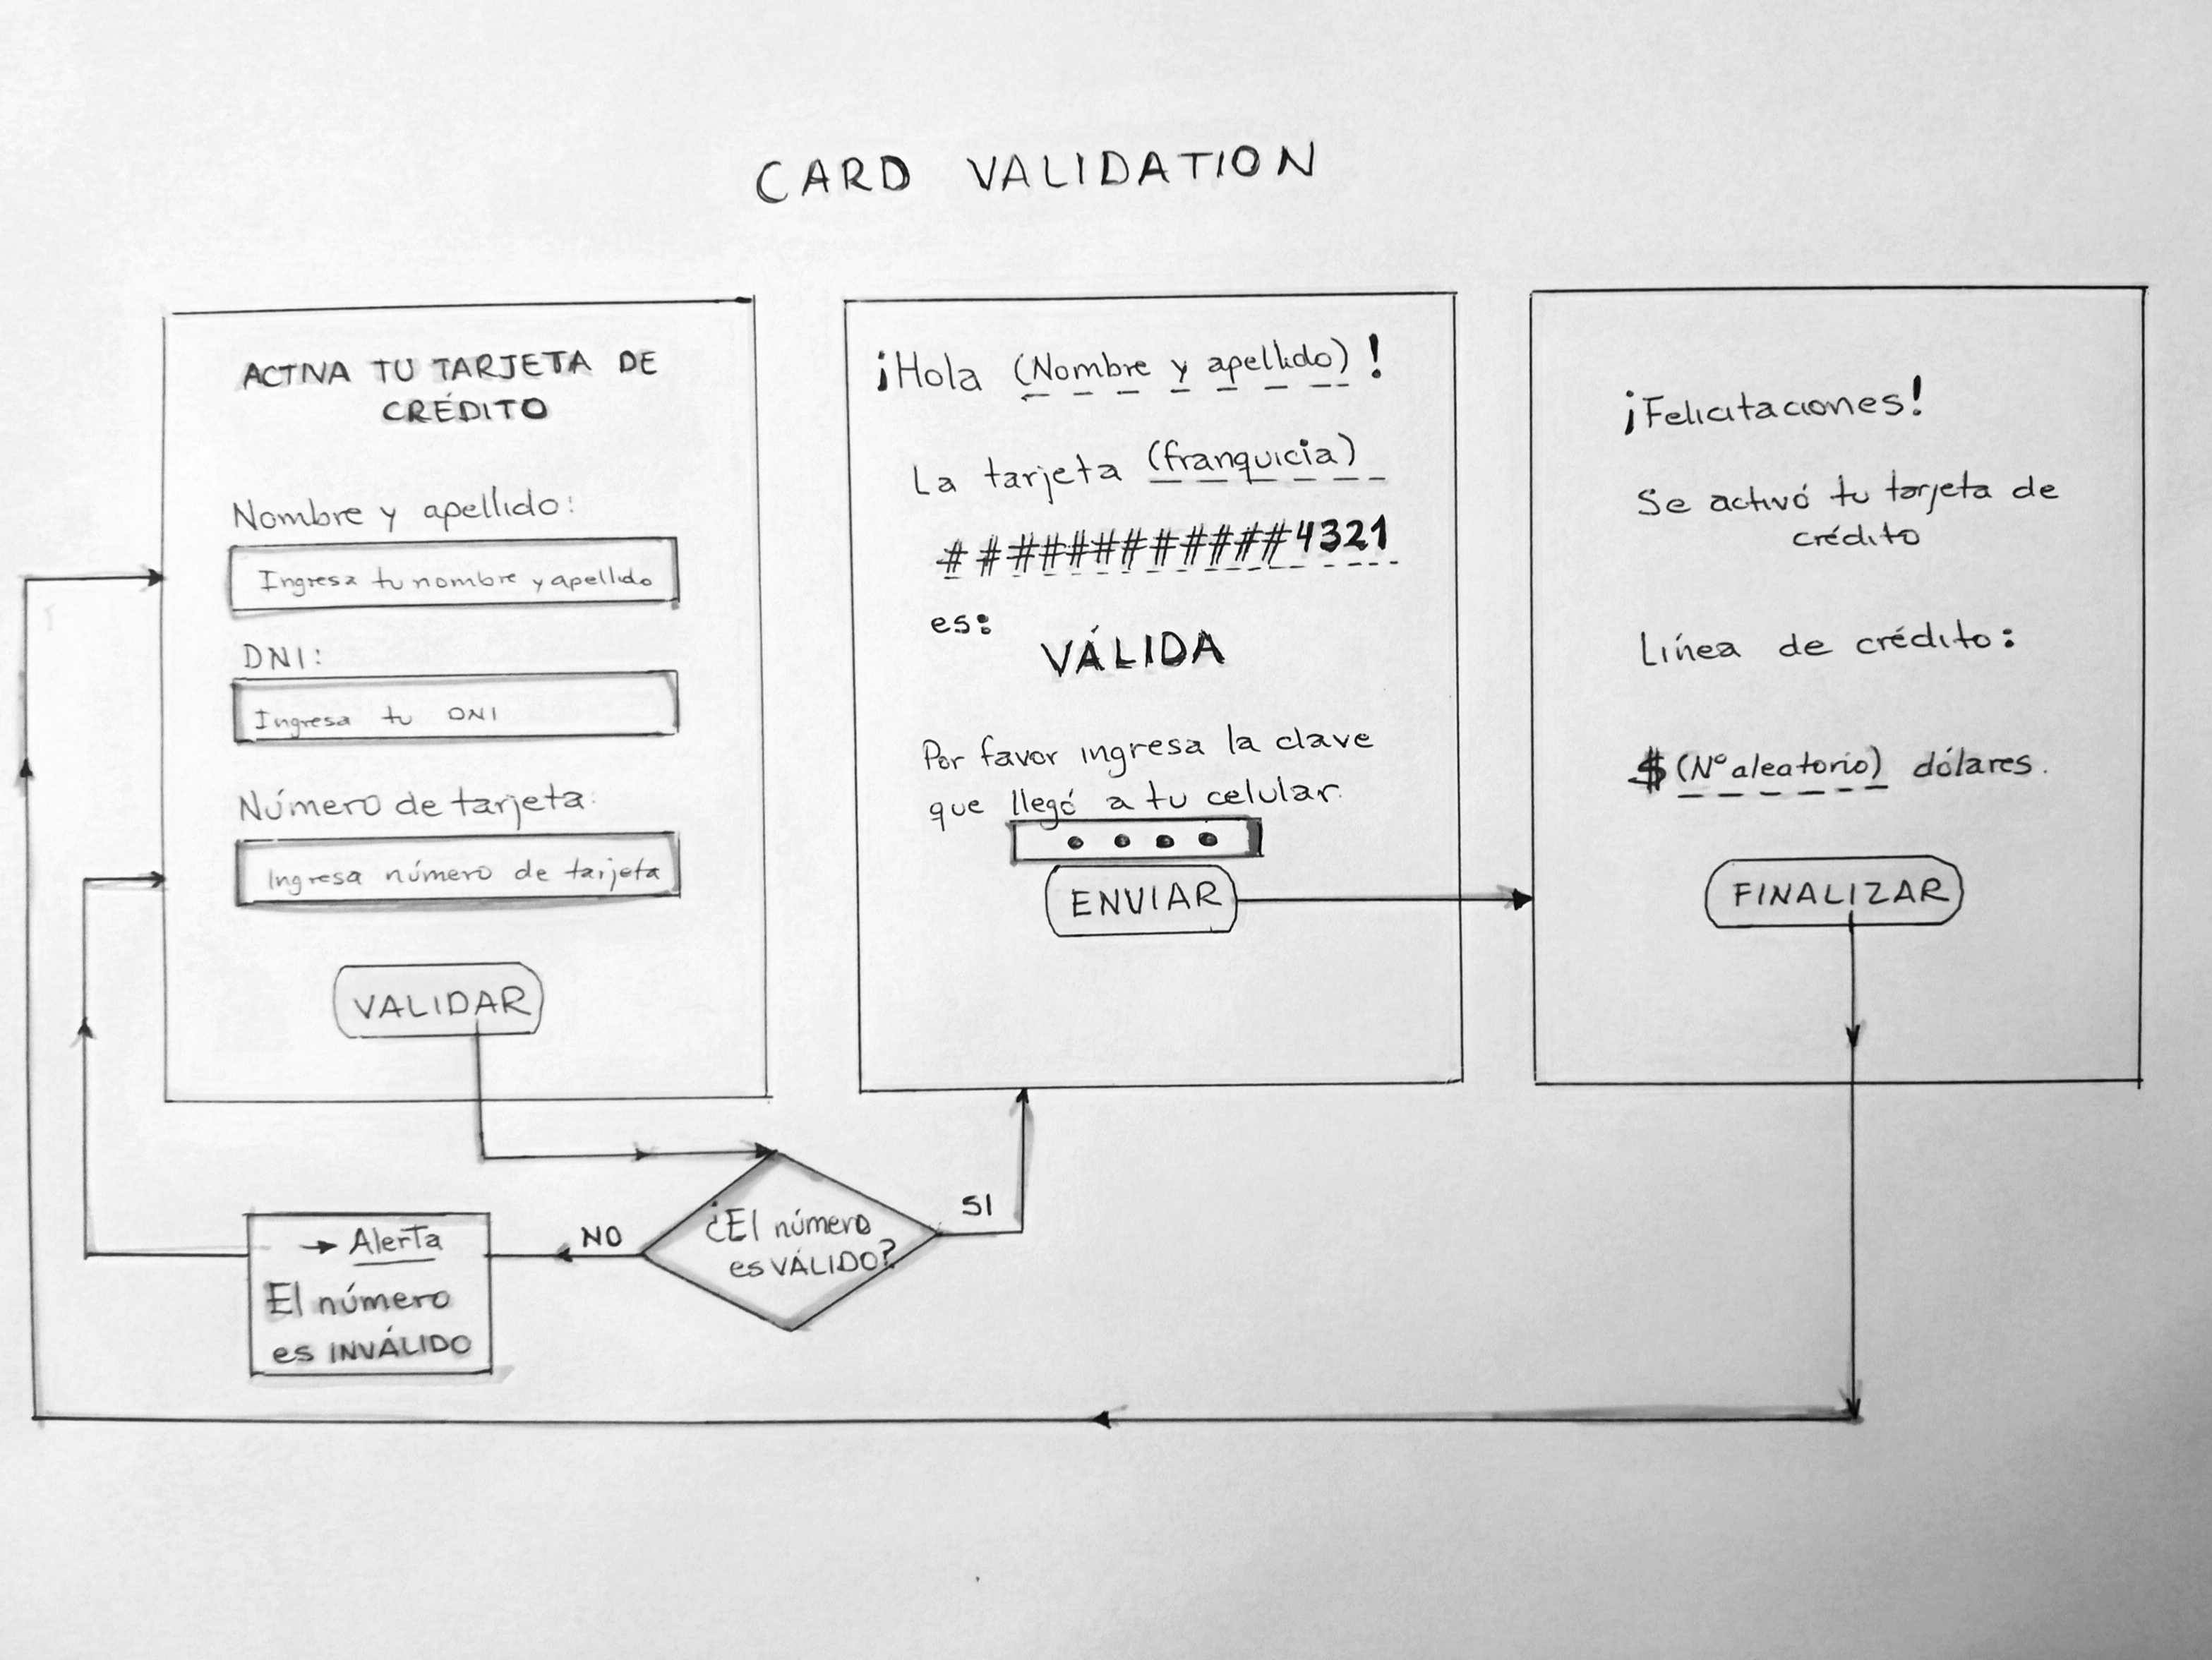 CARD VALIDATION
ACTIVA TU TARJETA DE
CRÉDITO
Nombre y apellido:
Ingresa tu nombre y apellido
DNI:
Ingresa tu DNI
Número de tarjeta:
Ingresa número de tarjeta
VALIDAR
¡Hola (Nombre y apellido)!
La tarjeta (franquicia)
############4321
es:
VÁLIDA
Por favor ingresa la clave
que llegó a tu celular.
ENVIAR
¡Felicitaciones!
Se activó tu tarjeta de
crédito
Línea de crédito:
$(N° aleatorio) dólares.
FINALIZAR
¿El número
es VÁLIDO?
SI
NO
→ Alerta
El número
es INVÁLIDO